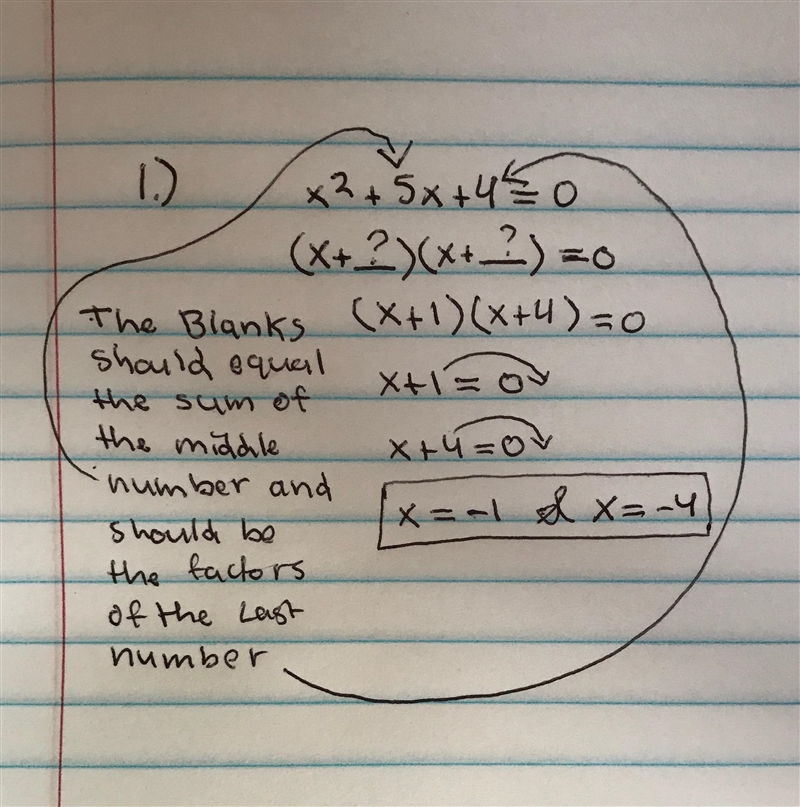 1.)
x2 + 5x + 4 = 0
(x + ?)(x + ?) = 0
(x+1)(x+4) = 0
x+1 = 0
x+4 = 0
x = -1 & x = -4
The Blanks
should equal
the sum of
the middle
number and
should be
the factors
of the Last
number